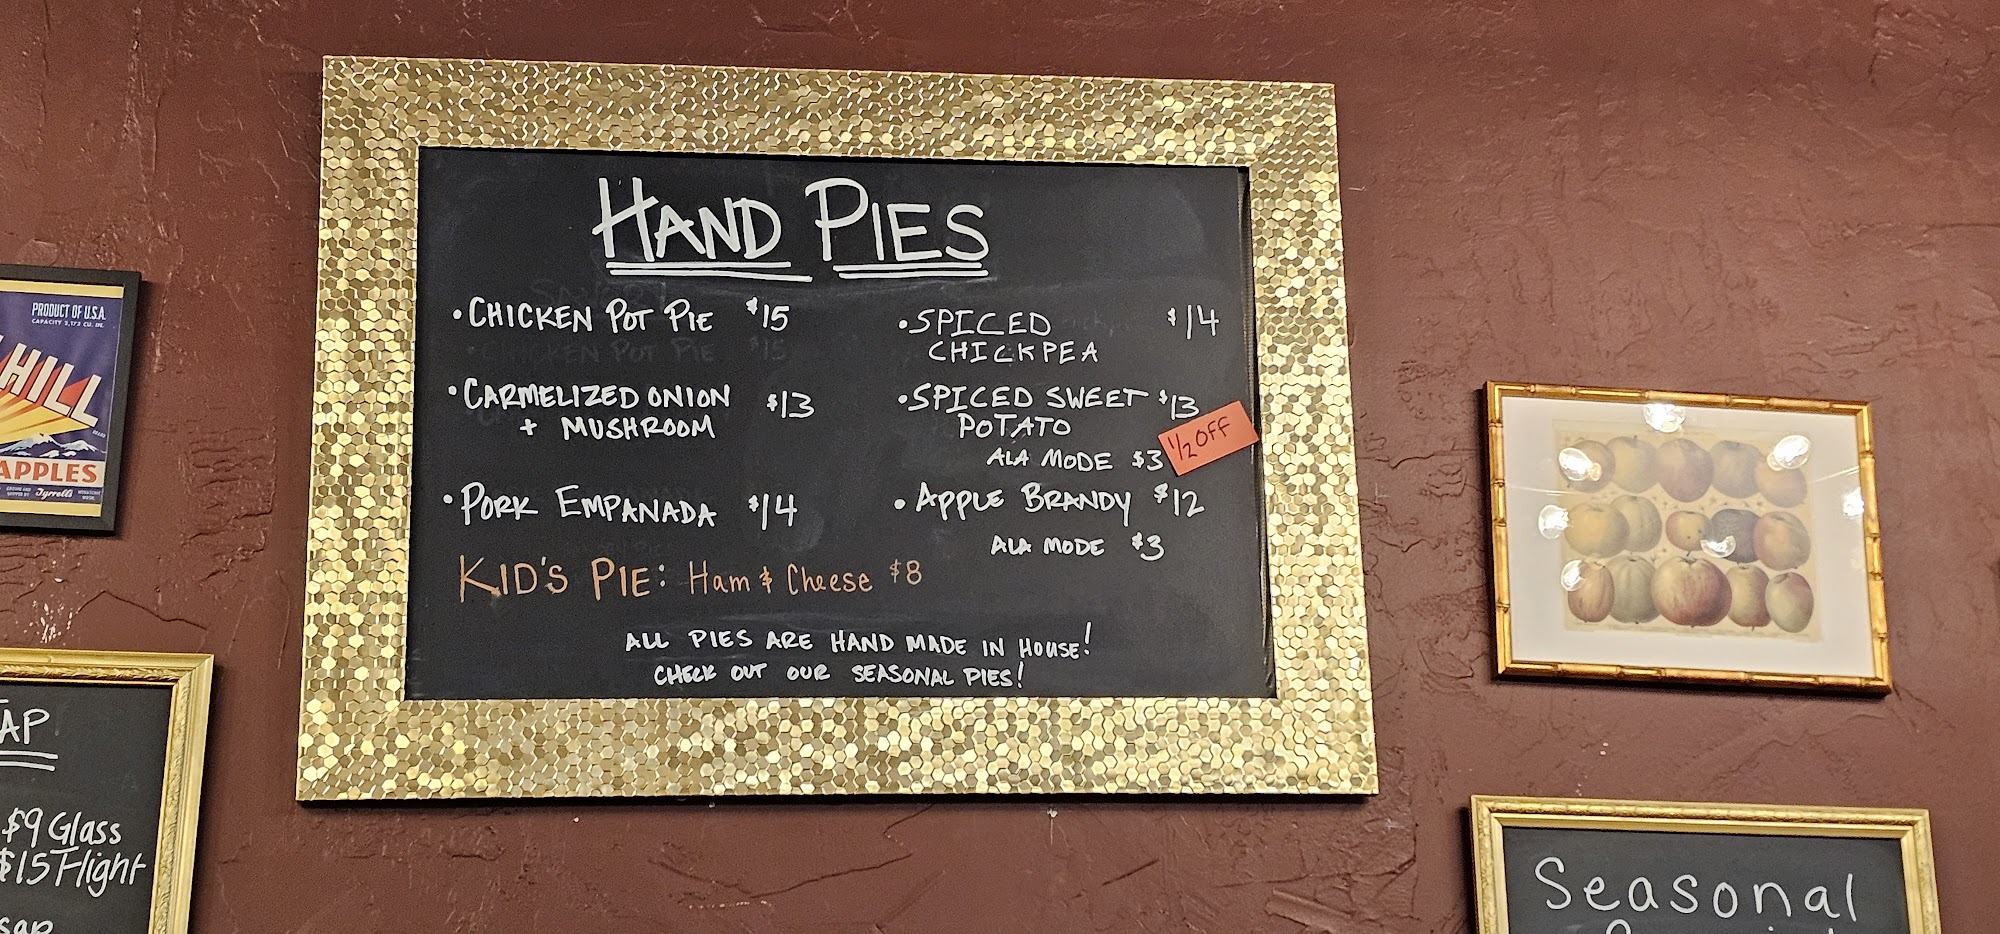 HAND PIES
• CHICKEN POT PIE $15
• CHICKEN POT PIE $15
• CARMELIZED ONION $13
+ MUSHROOM
• PORK EMPANADA $14
• SPICED $14
CHICKPEA
• SPICED SWEET $13
POTATO
1/2 OFF
ALA MODE $3
• APPLE BRANDY $12
ALA MODE $3
KID'S PIE: Ham & Cheese $8
ALL PIES ARE HAND MADE IN HOUSE!
CHECK OUT OUR SEASONAL PIES!
PRODUCT OF U.S.A.
CAPACITY 2,173 CU. IN.
HILL
APPLES
AP
$9 Glass
$15 Flight
Seasonal